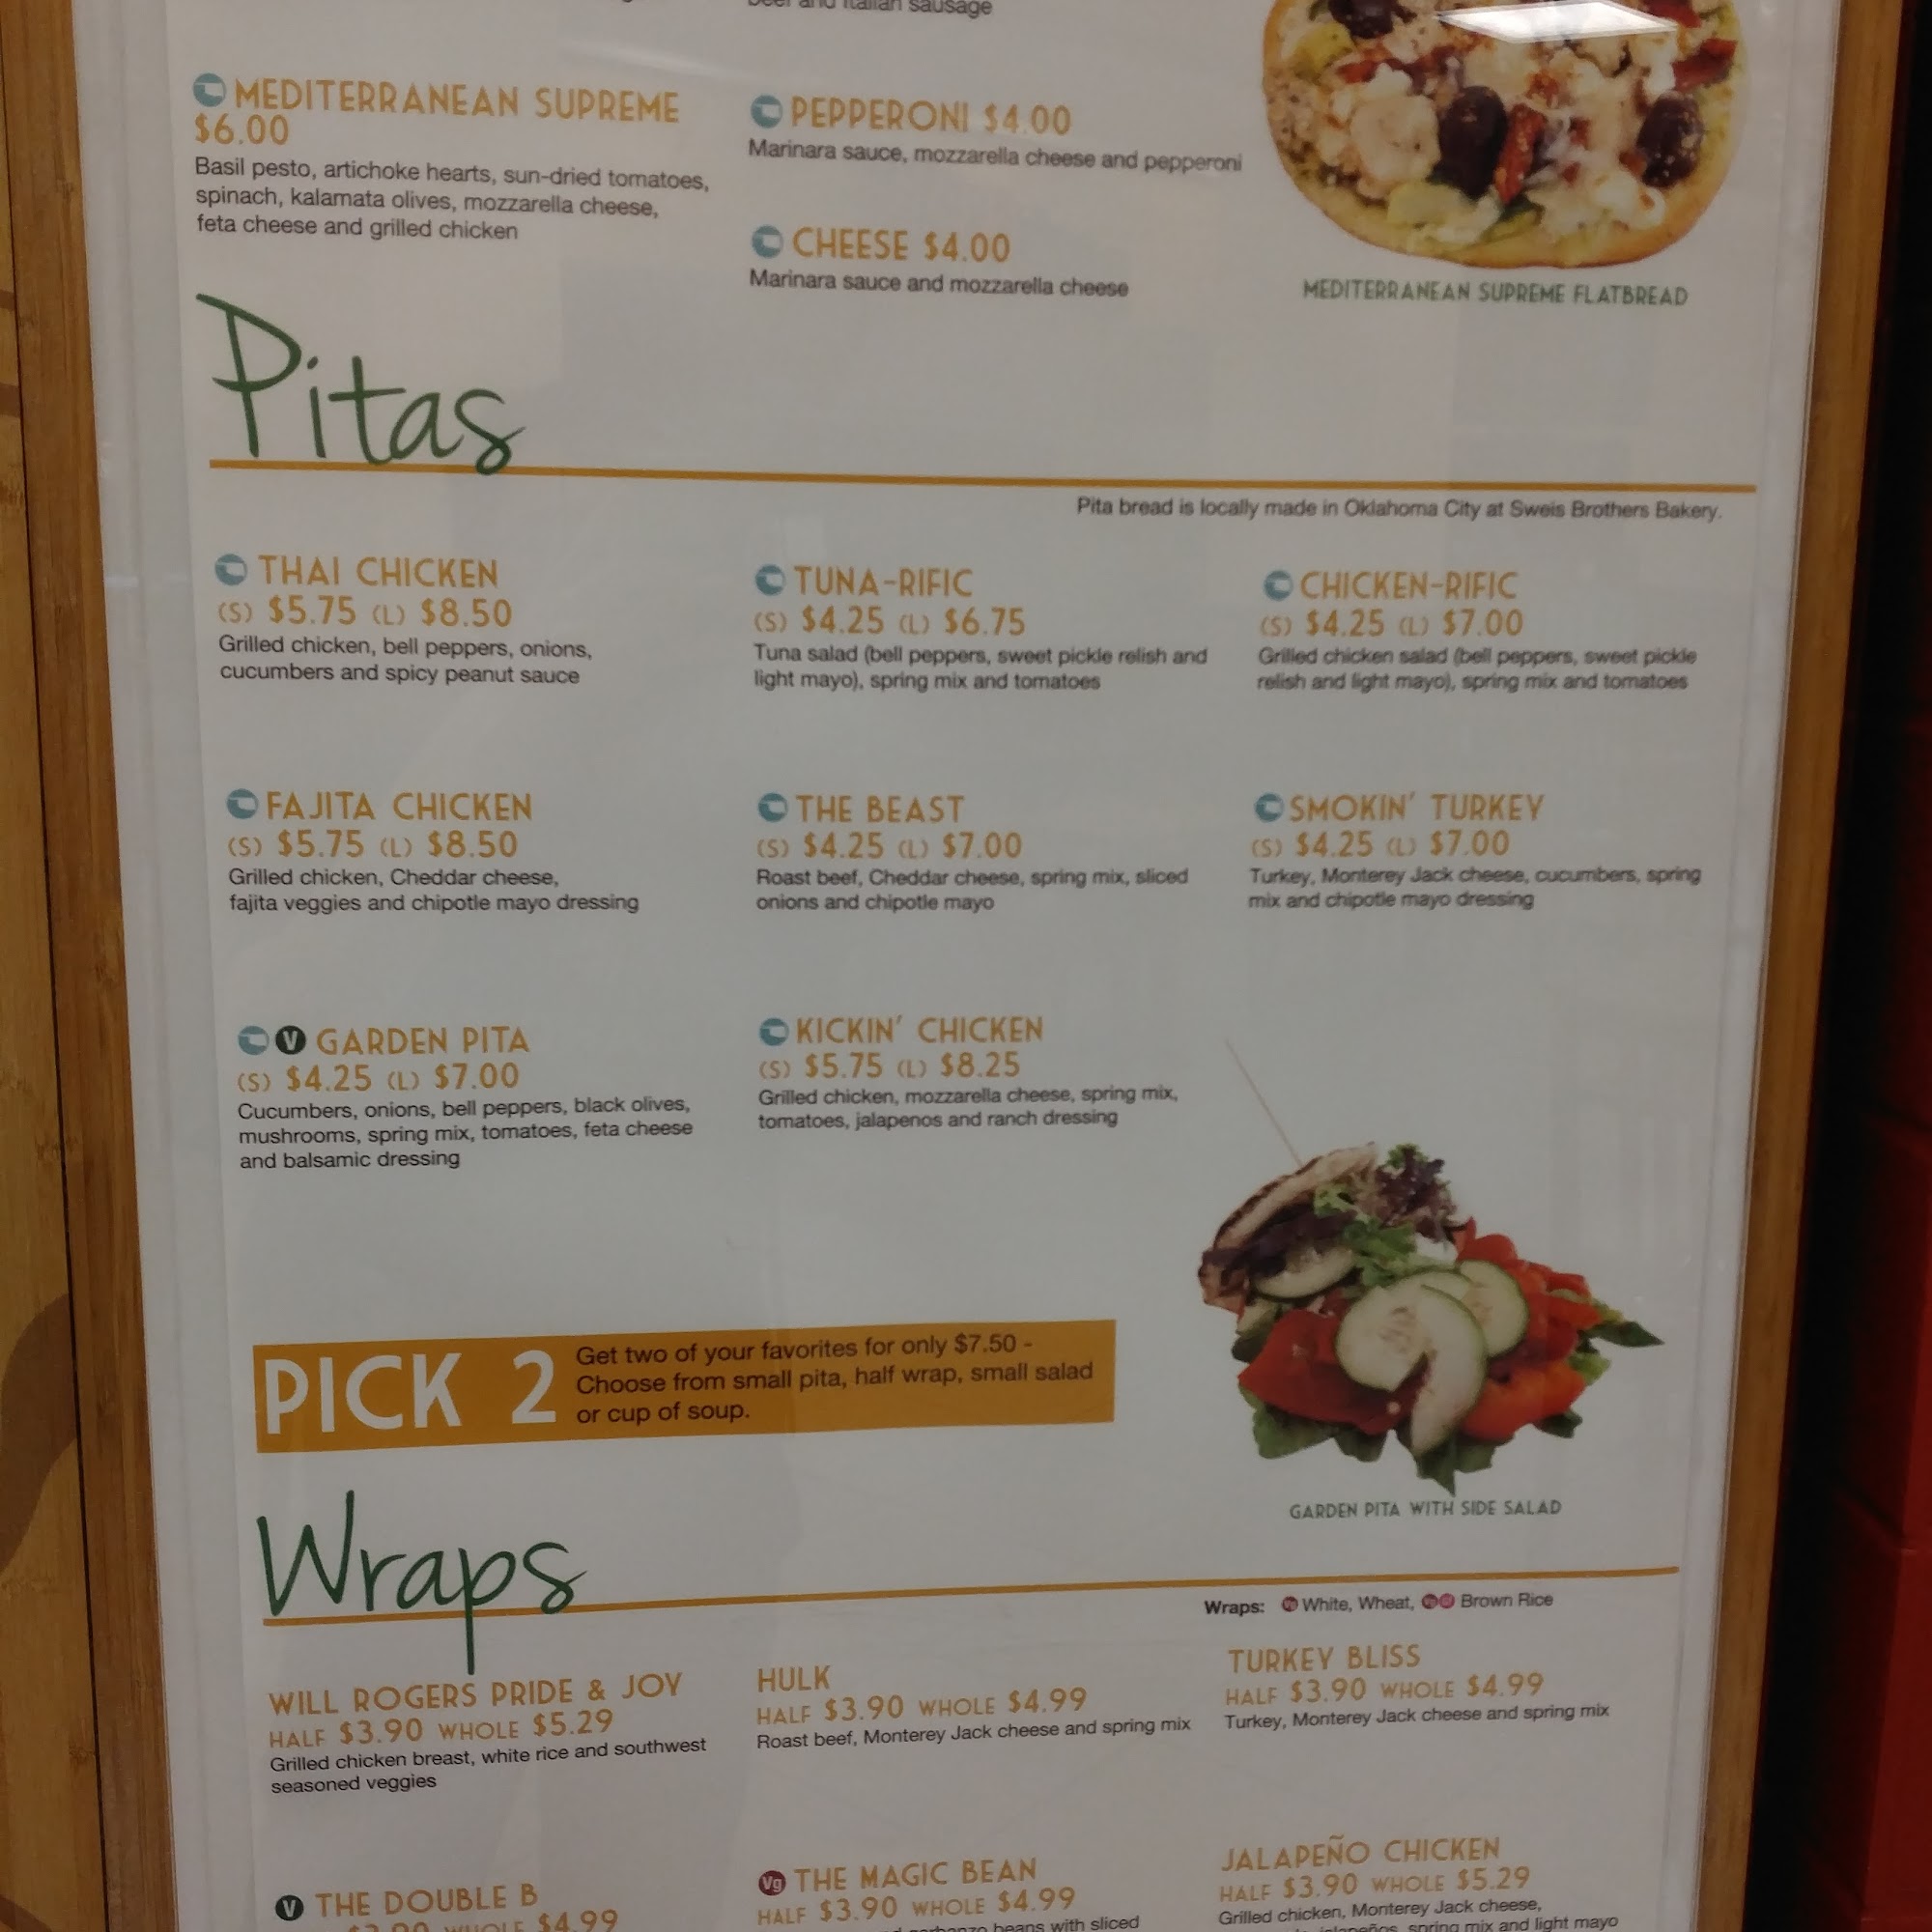 and Italian sausage
MEDITERRANEAN SUPREME
$6.00
Basil pesto, artichoke hearts, sun-dried tomatoes,
spinach, kalamata olives, mozzarella cheese,
feta cheese and grilled chicken
PEPPERONI $4.00
Marinara sauce, mozzarella cheese and pepperoni
CHEESE $4.00
Marinara sauce and mozzarella cheese
MEDITERRANEAN SUPREME FLATBREAD
Pitas
Pita bread is locally made in Oklahoma City at Sweis Brothers Bakery.
THAI CHICKEN
(S) $5.75 (L) $8.50
Grilled chicken, bell peppers, onions,
cucumbers and spicy peanut sauce
TUNA-RIFIC
(S) $4.25 (L) $6.75
Tuna salad (bell peppers, sweet pickle relish and
light mayo), spring mix and tomatoes
CHICKEN-RIFIC
(S) $4.25 (L) $7.00
Grilled chicken salad (bell peppers, sweet pickle
relish and light mayo), spring mix and tomatoes
FAJITA CHICKEN
(S) $5.75 (L) $8.50
Grilled chicken, Cheddar cheese,
fajita veggies and chipotle mayo dressing
THE BEAST
(S) $4.25 (L) $7.00
Roast beef, Cheddar cheese, spring mix, sliced
onions and chipotle mayo
SMOKIN' TURKEY
(S) $4.25 (L) $7.00
Turkey, Monterey Jack cheese, cucumbers, spring
mix and chipotle mayo dressing
V GARDEN PITA
(S) $4.25 (L) $7.00
Cucumbers, onions, bell peppers, black olives,
mushrooms, spring mix, tomatoes, feta cheese
and balsamic dressing
KICKIN' CHICKEN
(S) $5.75 (L) $8.25
Grilled chicken, mozzarella cheese, spring mix,
tomatoes, jalapenos and ranch dressing
PICK 2
Get two of your favorites for only $7.50 -
Choose from small pita, half wrap, small salad
or cup of soup.
GARDEN PITA WITH SIDE SALAD
Wraps
Wraps: White, Wheat, Brown Rice
WILL ROGERS PRIDE & JOY
HALF $3.90 WHOLE $5.29
Grilled chicken breast, white rice and southwest
seasoned veggies
HULK
HALF $3.90 WHOLE $4.99
Roast beef, Monterey Jack cheese and spring mix
TURKEY BLISS
HALF $3.90 WHOLE $4.99
Turkey, Monterey Jack cheese and spring mix
V THE DOUBLE B
WHOLE $4.99
Vg THE MAGIC BEAN
HALF $3.90 WHOLE $4.99
beans with sliced
JALAPEÑO CHICKEN
HALF $3.90 WHOLE $5.29
Grilled chicken, Monterey Jack cheese,
spring mix and light mayo